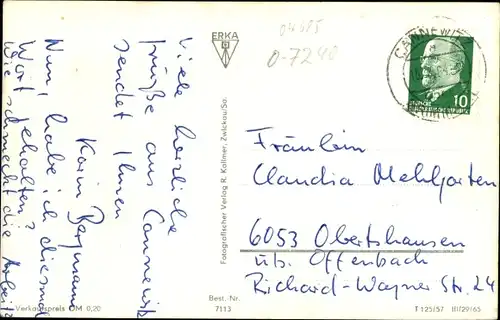 Viele herzliche
Grüße aus Cannewitz
sendet Ihnen
Karin Bergmann
Nun, habe ich diesmal
Wort gehalten?
Wie schmeckt die Arbeit?
ERKA
04685
0-7240
Fotografischer Verlag R. Kallmer, Zwickau/Sa.
CANNEWITZ
10
Fräulein
Claudia Mehlgarten
6053 Obertshausen
üb. Offenbach
Richard-Wagner Str. 24
Verkaufspreis DM 0,20
Best.-Nr.
7113
T 125/57 III/29/65